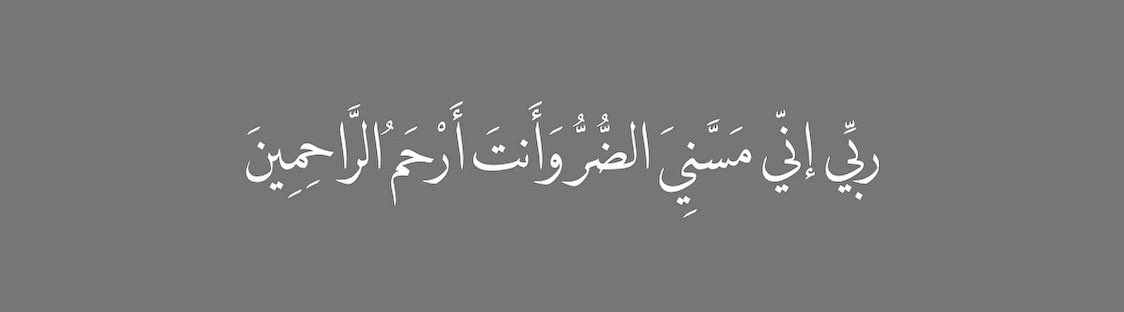 ربِّي إنّي مَسَّنِيَ الضُّرُّ وَأَنتَ أَرْحَمُ الرَّاحِمِينَ